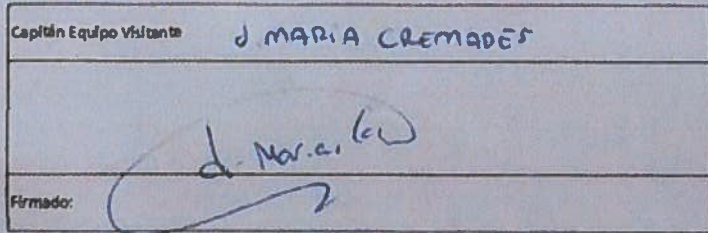 Capitán Equipo Visitante J MARIA CREMADES
J. Maria
Firmado: